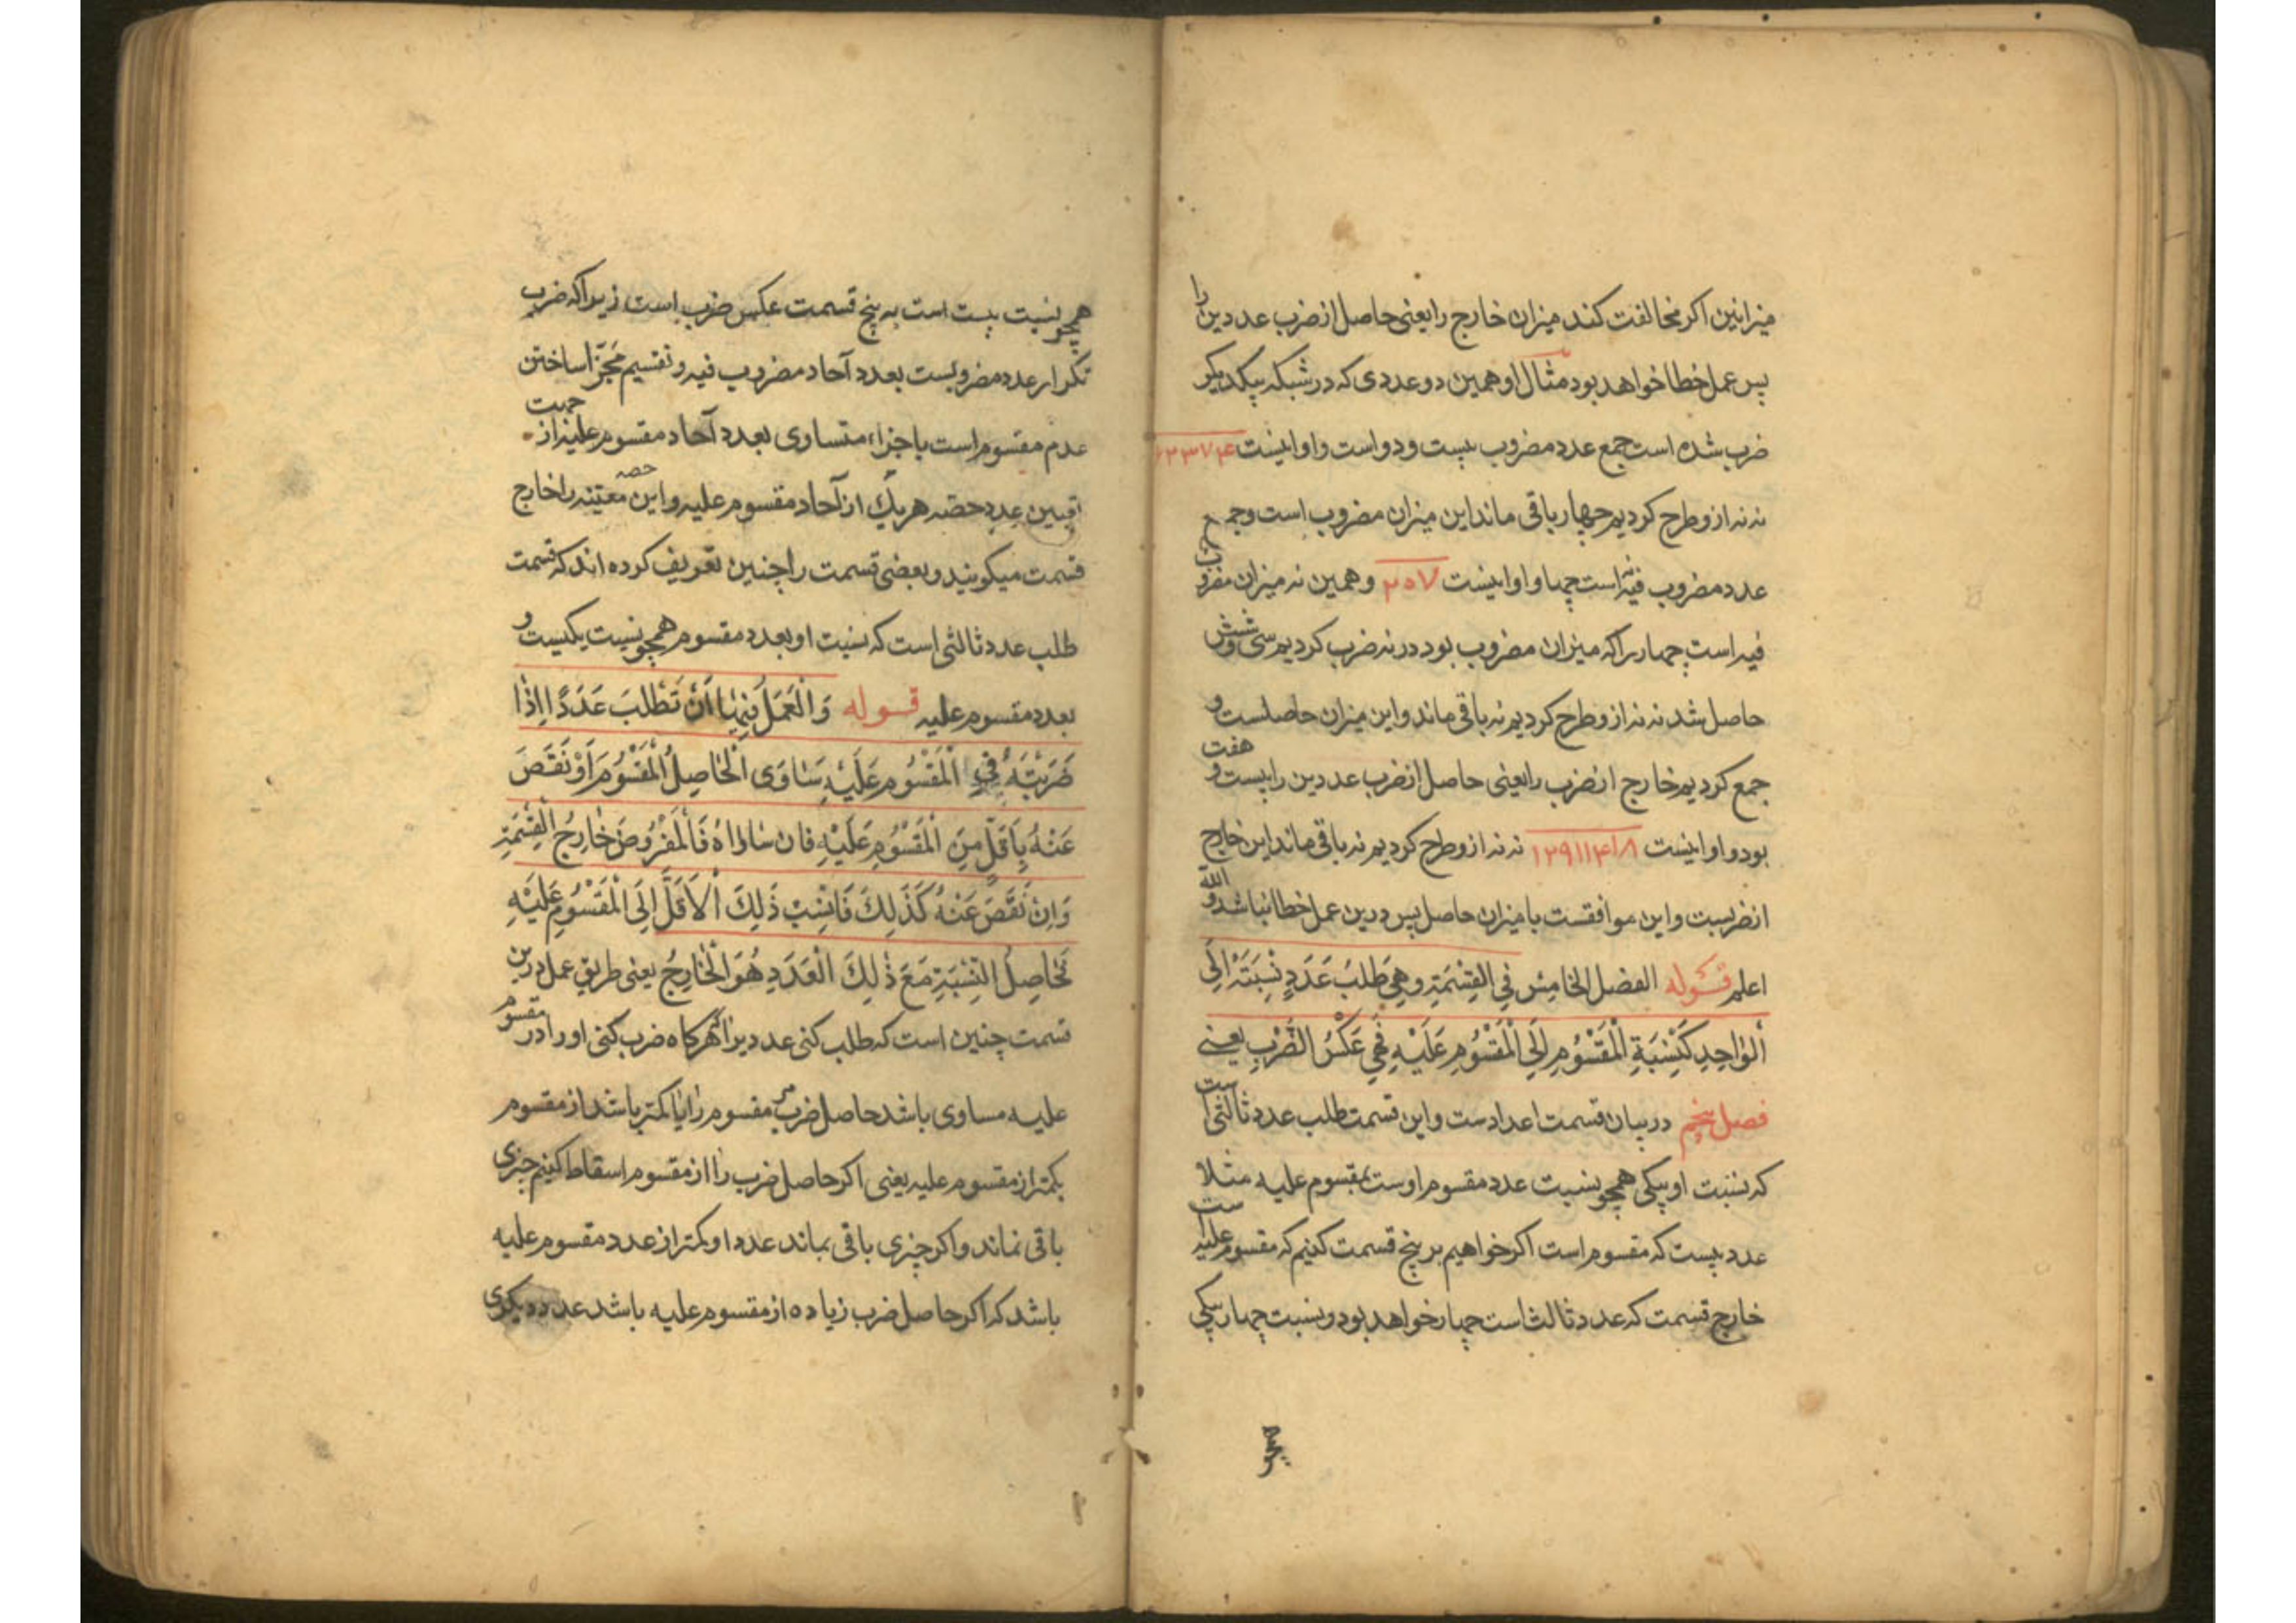 میزانین اکر مخالفت کند میزان خارج را یعنی حاصل از ضرب عددین را
پس عمل خطا خواهد بود مثال او همین دو عددی که در شبکه بیکدیکر
ضرب شده است جمع عدد مضروب بیست و دو است و او اینست ۶۲۳۷۴
نه نه از و طرح کردیم چهار باقی ماند این میزان مضروب است و جمع
عدد مضروب فیه است چهاو او اینست ۲۰۷ و همین نه میزان مضروب
فیه است چهار را که میزان مضروب بود در نه ضرب کردیم سی و شش
حاصل شد نه نه از و طرح کردیم نه باقی ماند و این میزان حاصلست و
جمع کردیم خارج از ضرب را یعنی حاصل از ضرب عددین را بیست و هفت
بود و او اینست ۱۲۹۱۱۴۱۸ نه نه از و طرح کردیم نه باقی ماند این خارج
از ضربست و این موافقست با میزان حاصل پس درین عمل خطا نباشد و الله
اعلم قَوله الفصل الخامِسُ فِي القِسْمَةِ وهِيَ طَلَبُ عَدَدٍ نِسْبَتُهُ اِلَی
اَلْوٰاحِدِ كَنِسْبَةِ الْمَقْسُومِ اِلَی الْمَقْسُومِ عَلَيْهِ فَهِيَ عَكْسُ الضَّرْبِ یعنی
فصل پنجم در بیان قسمت اعدادست و این قسمت طلب عدد ثالثی است
که نسبت او بیکی همچو نسبت عدد مقسوم اوست بمقسوم علیه مثلا
عدد بیست که مقسوم است اکر خواهیم بر پنج قسمت کنیم که مقسوم علیه است
خارج قسمت که عدد ثالث است چهار خواهد بود و نسبت چهار بیکی
همچو
همچو نسبت بیست است به پنج قسمت عکس ضرب است زیرا که ضرب
تکرار عدد مضروبست بعدد آحاد مضروب فیه و تقسیم مجزّا ساختن
عدم مقسوم است باجزاء متساوی بعدد آحاد مقسوم علیه از جهت
تعیین عدد حصّه هر یک از آحاد مقسوم علیه و این حصه معیّنه را خارج
قسمت میکویند و بعضی قسمت را چنین تعریف کرده اند که قسمت
طلب عدد ثالثی است که نسبت او بعدد مقسوم همچو نسبت یکیست و
بعدد مقسوم علیه قوله وَالْعَمَلُ فِيهٰا اَنْ تَطْلُبَ عَدَدًا اِذٰا
ضَرَبْتَهُ فِي الْمَقْسُومِ عَلَيْهِ سَاوَی الْحَاصِلُ الْمَقْسُومَ اَوْ نَقَصَ
عَنْهُ بِاَقَلَّ مِنَ الْمَقْسُومِ عَلَيْهِ فان سٰاوٰاهُ فَالْمَفْرُوضُ خٰارِجُ الْقِسْمَةِ
وَاِنْ نَقَصَ عَنْهُ كَذَلِكَ فَانْسِبْ ذَلِكَ الْاَقَلَّ اِلَی الْمَقْسُومِ عَلَيْهِ
فَحَاصِلُ النِّسْبَةِ مَعَ ذٰلِكَ الْعَدَدِ هُوَ الْخٰارِجُ یعنی طریق عمل درین
قسمت چنین است که طلب کنی عددیرا که هرکاه ضرب کنی او را در مقسوم
علیه مساوی باشد حاصل ضرب مقسوم را یا کمتر باشد از مقسوم
بکمتر از مقسوم علیه یعنی اکر حاصل ضرب را از مقسوم اسقاط کنیم چیزی
باقی نماند و اکر چیزی باقی بماند عدد او کمتر از عدد مقسوم علیه
باشد که اکر حاصل ضرب زیاده از مقسوم علیه باشد عدد دیکری